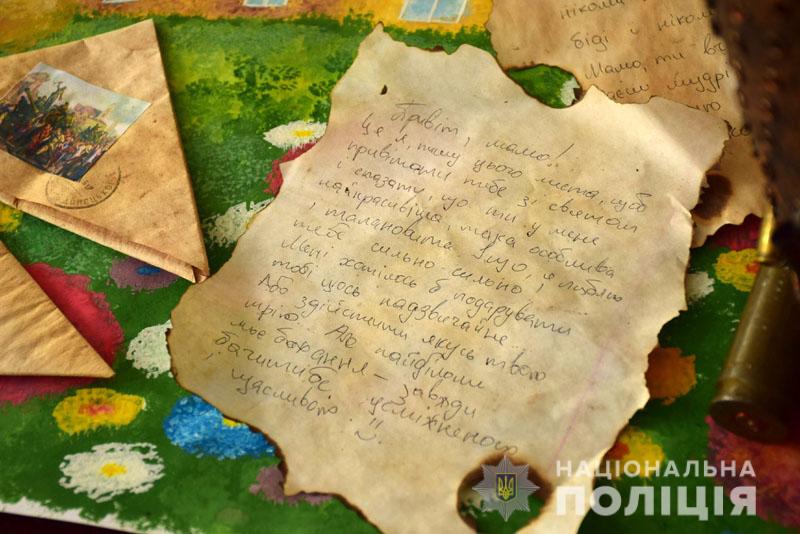 Привіт, мамо!
Це я, пишу цього листа, щоб
привітати тебе зі святом
і сказати, що ти у мене
найкрасивіша, така особлива
і талановита. І що, я люблю
тебе сильно сильно!
Мені хотілось б подарувати
тобі щось надзвичайне.
Або здійснити якусь твою
мрію. Але найбільше
моє бажання – завжди
бачити тебе усміхненою
і щасливою!!
ніколи
біді и нікол
Мамо, ти
мудрі
НАЦІОНАЛЬНА
ПОЛІЦІЯ